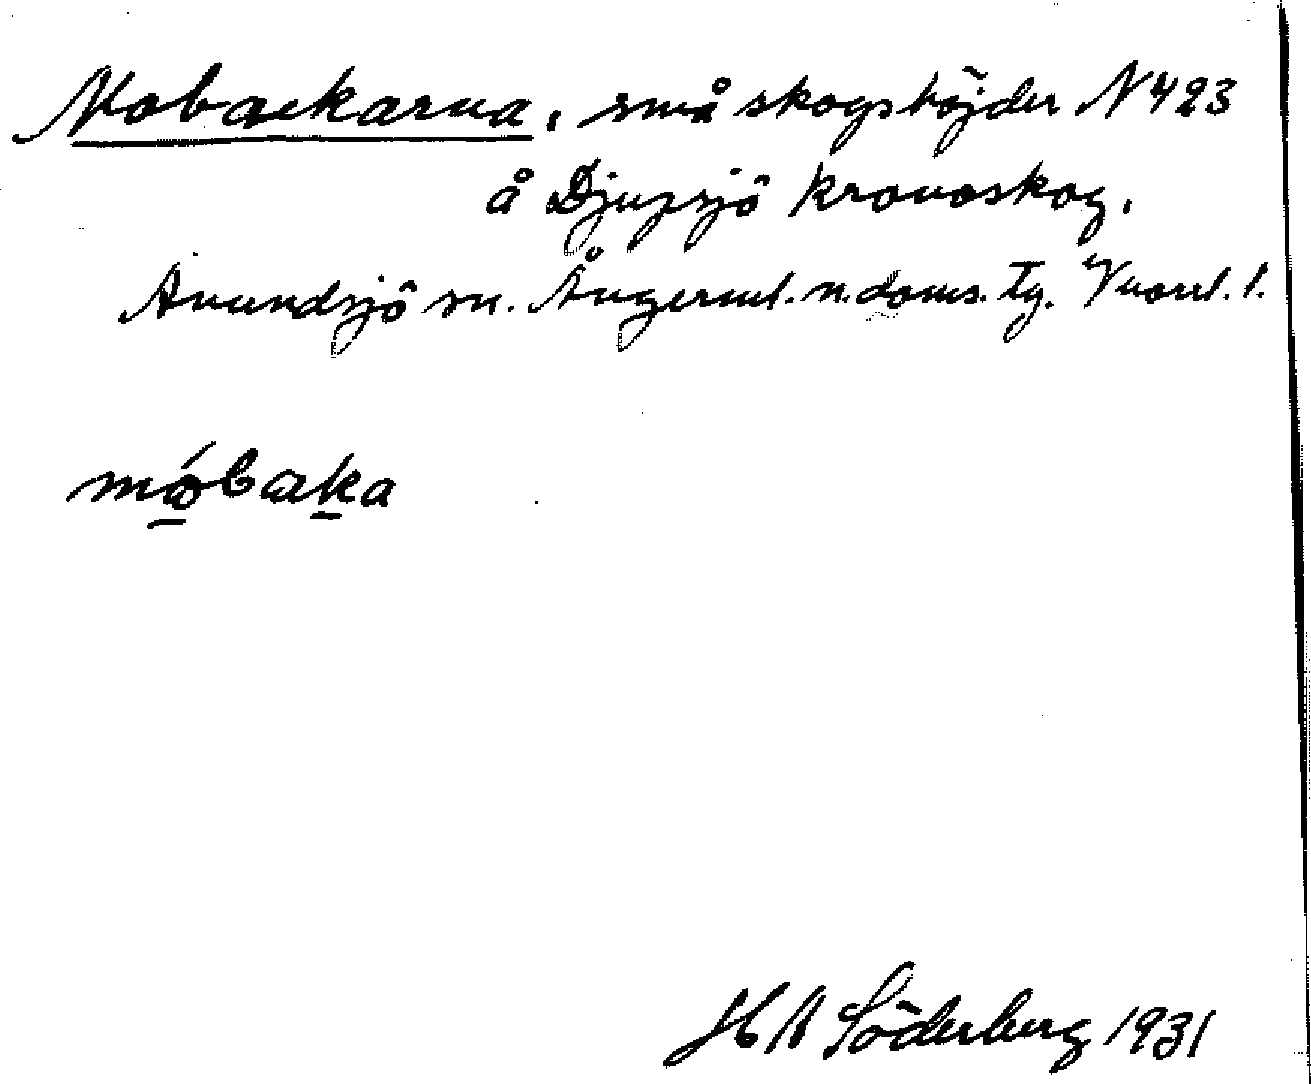 Mobackarna, små skogshöjder N 423
å Djupsjö kronoskog,
Anundsjö sn. Ångerml. n. doms. tg. Vnorrl. l.
móbaka
H A Söderberg 1931